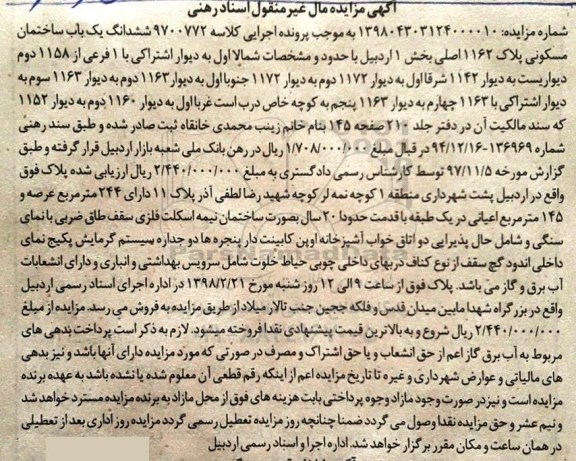 آگهی مزایده مال غیر منقول اسناد رهنی
شماره مزایده: ۱۳۹۸۰۴۳۰۳۱۲۴۰۰۰۰۱۰ به موجب پرونده اجرایی کلاسه ۹۷۰۰۷۷۲ ششدانگ یک باب ساختمان
مسکونی پلاک ۱۱۶۲ اصلی بخش ۱ اردبیل با حدود و مشخصات شمالا اول به دیوار اشتراکی با ۱ فرعی از ۱۱۵۸ دوم
دیواریست به دیوار ۱۱۴۲ شرقا اول به دیوار ۱۱۷۲ دوم به دیوار ۱۱۷۲ جنوبا اول به دیوار ۱۱۶۳ دوم به دیوار ۱۱۶۳ سوم به
دیوار اشتراکی با ۱۱۶۳ چهارم به دیوار ۱۱۶۳ پنجم به کوچه خاص درب است غربا اول به دیوار ۱۱۶۰ دوم به دیوار ۱۱۵۲
که سند مالکیت آن در دفتر جلد ۲۱۰ صفحه ۱۴۵ بنام خانم زینب محمدی خانقاه ثبت صادر شده و طبق سند رهنی
شماره ۱۳۶۹۶۹-۹۴/۱۲/۱۶ در قبال مبلغ ۱/۷۰۸/۰۰۰/۰۰۰ ریال در رهن بانک ملی شعبه بازار اردبیل قرار گرفته و طبق
گزارش مورخه ۹۷/۱۱/۵ توسط کارشناس رسمی دادگستری به مبلغ ۲/۴۴۰/۰۰۰/۰۰۰ ریال ارزیابی شده پلاک فوق
واقع در اردبیل پشت شهرداری منطقه ۱ کوچه نمه لر کوچه شهید رضا لطفی آذر پلاک ۱۱ دارای ۲۴۴ متر مربع عرصه و
۱۴۵ متر مربع اعیانی در یک طبقه با قدمت حدودا ۲۰ سال بصورت ساختمان نیمه اسکلت فلزی سقف طاق ضربی با نمای
سنگی و شامل حال پذیرایی دو اتاق خواب آشپزخانه اوپن کابینت دار پنجره ها دو جداره سیستم گرمایش پکیج نمای
داخلی اندود گچ سقف از نوع کناف دربهای داخلی چوبی حیاط خلوت شامل سرویس بهداشتی و انباری و دارای انشعابات
آب برق و گاز می باشد. پلاک فوق از ساعت ۹ الی ۱۲ روز شنبه مورخ ۱۳۹۸/۲/۲۱ در اداره اجرای اسناد رسمی اردبیل
واقع در بزرگراه شهدا مابین میدان قدس و فلکه ججین جنب تالار میلاد از طریق مزایده به فروش می رسد. مزایده از مبلغ
۲/۴۴۰/۰۰۰/۰۰۰ ریال شروع و به بالاترین قیمت پیشنهادی نقدا فروخته میشود. لازم به ذکر است پرداخت بدهی های
مربوط به آب برق گاز اعم از حق انشعاب و یا حق اشتراک و مصرف در صورتی که مورد مزایده دارای آنها باشد و نیز بدهی
های مالیاتی و عوارض شهرداری و غیره تا تاریخ مزایده اعم از اینکه رقم قطعی آن معلوم شده یا نشده باشد به عهده برنده
مزایده است و نیز در صورت وجود مازاد وجوه پرداختی بابت هزینه های فوق از محل مازاد به برنده مزایده مسترد خواهد شد
و نیم عشر و حق مزایده نقدا وصول می گردد ضمنا چنانچه روز مزایده تعطیل رسمی گردد مزایده روز اداری بعد از تعطیلی
در همان ساعت و مکان مقرر برگزار خواهد شد. اداره اجرا و اسناد رسمی اردبیل